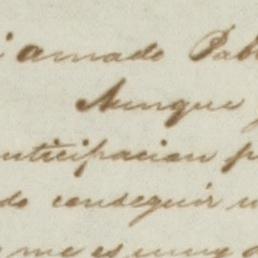 i amado Pab
Aunque
anticipacion p
do conseguir u
me es muy